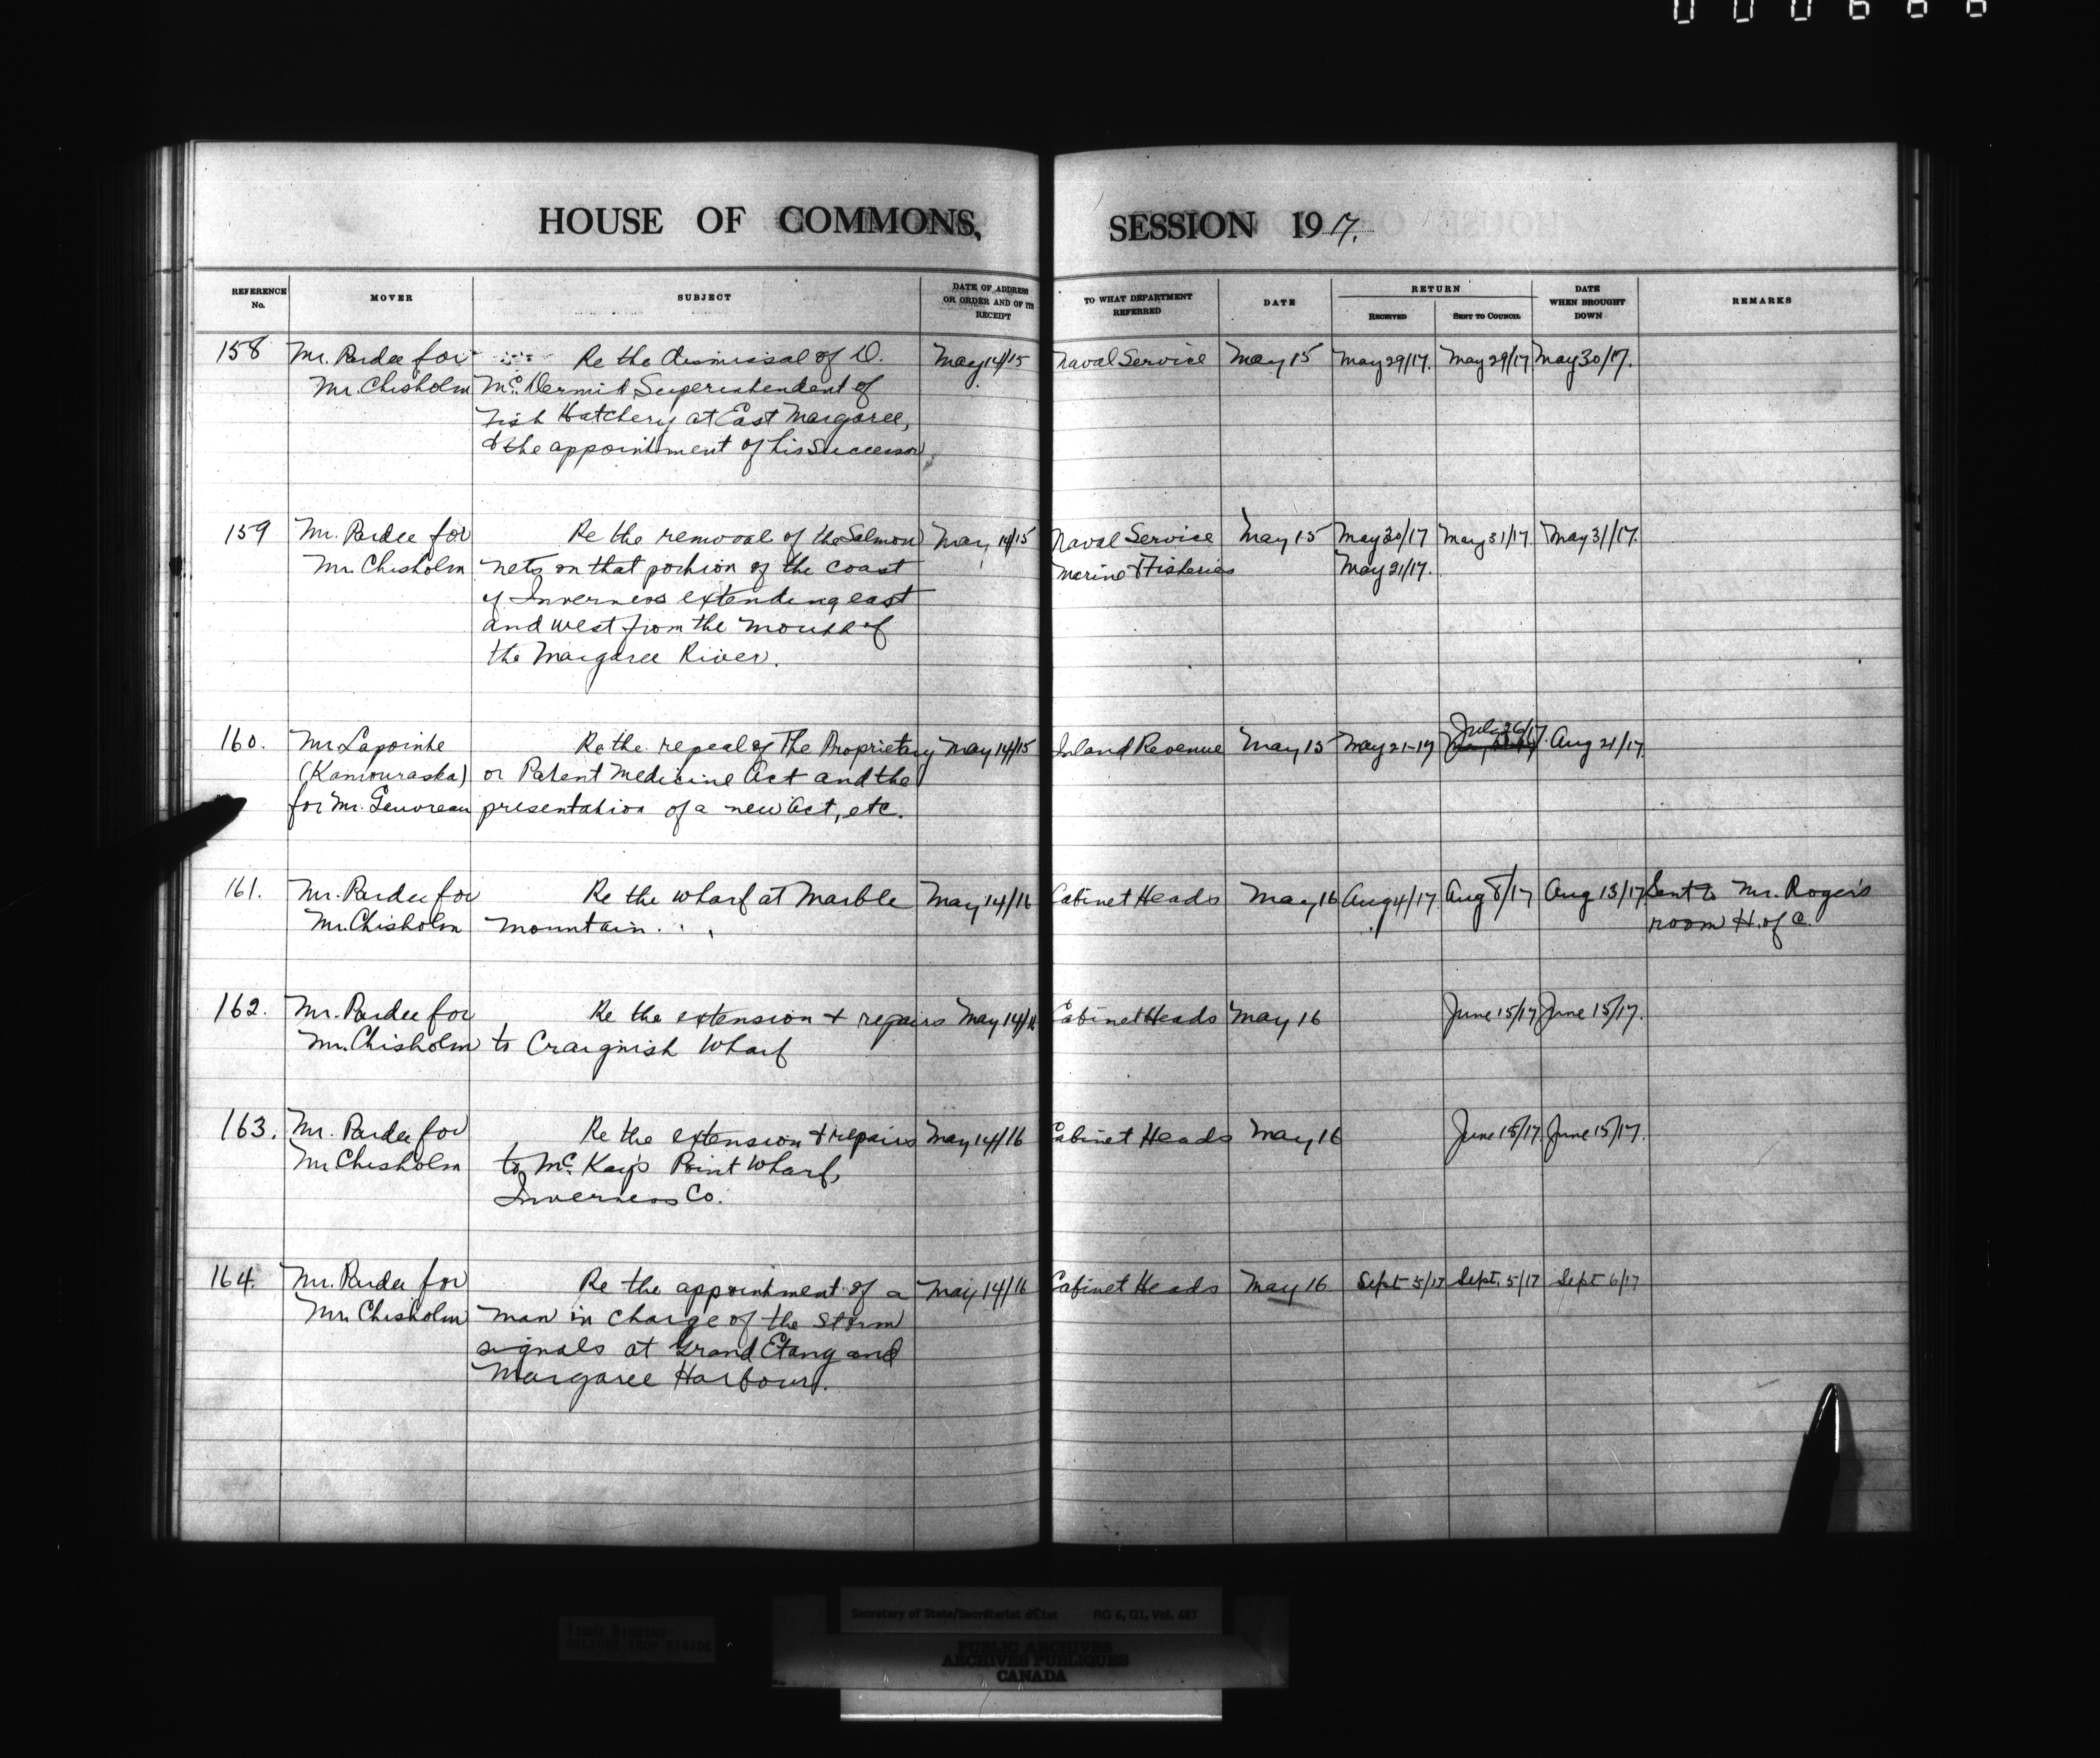 000666
HOUSE OF COMMONS, SESSION 1917.
REFERENCE No. MOVER SUBJECT DATE OF ADDRESS OR ORDER AND OF ITS RECEIPT TO WHAT DEPARTMENT REFERRED DATE RETURN RECEIVED SENT TO COUNCIL DATE WHEN BROUGHT DOWN REMARKS
158 Mr. Pardee for Re the dismissal of D. May 14/15 Naval Service May 15 May 29/17. May 29/17 May 30/17.
Mr. Chisholm Mc.Dermid Superintendent of
Fish Hatchery at East Margaree,
& the appointment of his Successor.
159 Mr. Pardee for Re the removal of the Salmon May 14/15 Naval Service May 15 May 30/17 May 31/17 May 31/17.
Mr. Chisholm nets on that portion of the coast Marine & Fisheries May 21/17.
of Inverness extending east
and west from the mouth of
the Margaree River.
July 26/17.
160. Mr Lapointe Re the repeal of The Proprietary May 14/15 Inland Revenue May 15 May 21-17 Aug 21/17.
(Kamouraska) or Patent Medicine Act and the
for Mr. Gauvreau presentation of a new Act, etc.
161. Mr. Pardee for Re the wharf at Marble May 14/16 Cabinet Heads May 16 Aug 4/17. Aug 8/17 Aug 13/17 Sent to Mr. Roger's
Mr. Chisholm Mountain. room H. of C.
162. Mr. Pardee for Re the extension + repairs May 14/16 Cabinet Heads May 16 June 15/17 June 15/17.
Mr. Chisholm to Craignish Wharf
163. Mr. Pardee for Re the extension + repairs May 14/16 Cabinet Heads May 16 June 15/17. June 15/17.
Mr Chisholm to Mc.Kay's Point Wharf,
Inverness Co.
164. Mr. Pardee for Re the appointment of a May 14/16 Cabinet Heads May 16 Sept 5/17 Sept. 5/17 Sept 6/17
Mr. Chisholm man in charge of the storm
signals at Grand Etang and
Margaree Harbour.
Secretary of State/Secrétariat d'État RG 6, G1, Vol. 685
TIGHT BINDING
RELIURE TROP RIGIDE
PUBLIC ARCHIVES
ARCHIVES PUBLIQUES
CANADA